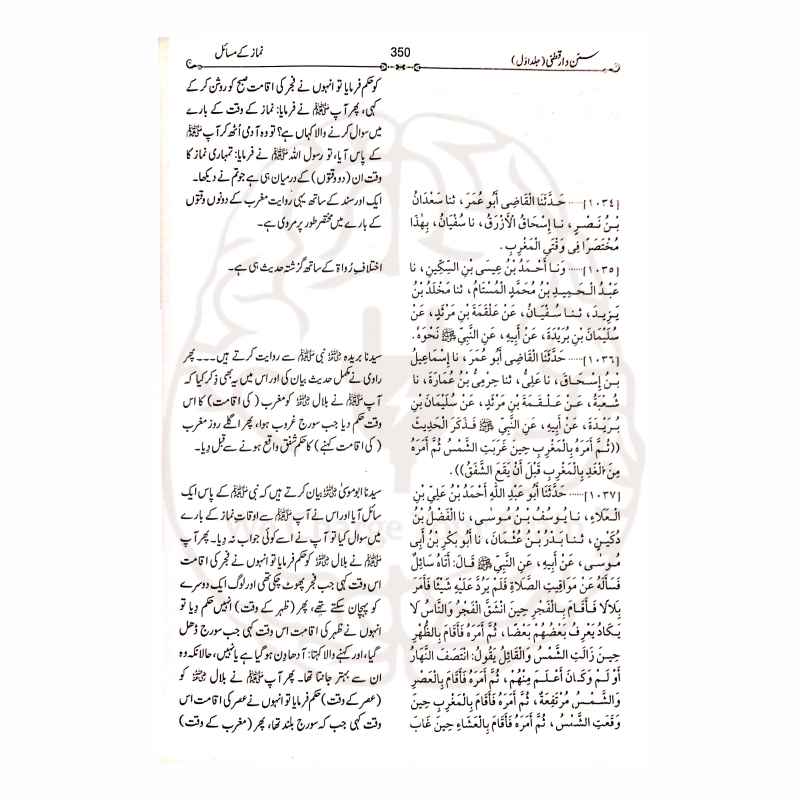 سنن دارقطنی (جلد اوّل)
350
نماز کے مسائل
[١٠٣٤]..... حَدَّثَنَا الْقَاضِي أَبُو عُمَرَ، ثنا سَعْدَانُ
بْنُ نَصْرٍ، نا إِسْحَاقُ الْأَزْرَقُ، نا سُفْيَانُ، بِهٰذَا
مُخْتَصَرًا فِي وَقْتَيِ الْمَغْرِبِ.
[١٠٣٥]..... وَنا أَحْمَدُ بْنُ عِيسَى بْنِ السِّكِّينِ، نا
عَبْدُ الْحَمِيدِ بْنُ مُحَمَّدٍ الْمُسْتَامُ، ثنا مَخْلَدُ بْنُ
يَزِيدَ، ثنا سُفْيَانُ، عَنْ عَلْقَمَةَ بْنِ مَرْثَدٍ، عَنْ
سُلَيْمَانَ بْنِ بُرَيْدَةَ، عَنْ أَبِيهِ، عَنِ النَّبِيِّ ﷺ نَحْوَهُ.
[١٠٣٦]..... حَدَّثَنَا الْقَاضِي أَبُو عُمَرَ، نا إِسْمَاعِيلُ
بْنُ إِسْحَاقَ، نا عَلِيٌّ، ثنا حِرْمِيُّ بْنُ عُمَارَةَ، نا
شُعْبَةُ، عَنْ عَلْقَمَةَ بْنِ مَرْثَدٍ، عَنْ سُلَيْمَانَ بْنِ
بُرَيْدَةَ، عَنْ أَبِيهِ، عَنِ النَّبِيِّ ﷺ فَذَكَرَ الْحَدِيثَ
((ثُمَّ أَمَرَهُ بِالْمَغْرِبِ حِينَ غَرَبَتِ الشَّمْسُ ثُمَّ أَمَرَهُ
مِنَ الْغَدِ بِالْمَغْرِبِ قَبْلَ أَنْ يَقَعَ الشَّفَقُ)).
[١٠٣٧]..... حَدَّثَنَا أَبُو عَبْدِ اللَّهِ أَحْمَدُ بْنُ عَلِيِّ بْنِ
الْعَلَاءِ، نا يُوسُفُ بْنُ مُوسَى، نا الْفَضْلُ بْنُ
دُكَيْنٍ، ثنا بَدْرُ بْنُ عُثْمَانَ، نا أَبُو بَكْرِ بْنُ أَبِي
مُوسَى، عَنْ أَبِيهِ، عَنِ النَّبِيِّ ﷺ قَالَ: أَتَاهُ سَائِلٌ
فَسَأَلَهُ عَنْ مَوَاقِيتِ الصَّلَاةِ فَلَمْ يَرُدَّ عَلَيْهِ شَيْئًا فَأَمَرَ
بِلَالًا فَأَقَامَ بِالْفَجْرِ حِينَ انْشَقَّ الْفَجْرُ وَالنَّاسُ لَا
يَكَادُ يَعْرِفُ بَعْضُهُمْ بَعْضًا، ثُمَّ أَمَرَهُ فَأَقَامَ بِالظُّهْرِ
حِينَ زَالَتِ الشَّمْسُ وَالْقَائِلُ يَقُولُ: انْتَصَفَ النَّهَارُ
أَوْ لَمْ وَكَانَ أَعْلَمَ مِنْهُمْ، ثُمَّ أَمَرَهُ فَأَقَامَ بِالْعَصْرِ
وَالشَّمْسُ مُرْتَفِعَةٌ، ثُمَّ أَمَرَهُ فَأَقَامَ بِالْمَغْرِبِ حِينَ
وَقَعَتِ الشَّمْسُ، ثُمَّ أَمَرَهُ فَأَقَامَ بِالْعَشَاءِ حِينَ غَابَ
کو حکم فرمایا تو انہوں نے فجر کی اقامت صبح کو روشن کر کے
کہی، پھر آپ ﷺ نے فرمایا: نماز کے وقت کے بارے
میں سوال کرنے والا کہاں ہے؟ تو وہ آدمی اُٹھ کر آپ ﷺ
کے پاس آیا، تو رسول اللہ ﷺ نے فرمایا: تمہاری نماز کا
وقت ان (دو وقتوں) کے درمیان ہی ہے جو تم نے دیکھا۔
ایک اور سند کے ساتھ یہی روایت مغرب کے دونوں وقتوں
کے بارے میں مختصر طور پر مروی ہے۔
اختلافِ رُواۃ کے ساتھ گزشتہ حدیث ہی ہے۔
سیدنا بریدہ رضی اللہ عنہ نبی ﷺ سے روایت کرتے ہیں۔۔۔ پھر
راوی نے مکمل حدیث بیان کی اور اس میں یہ بھی ذکر کیا کہ
آپ ﷺ نے بلال رضی اللہ عنہ کو مغرب (کی اقامت) کا اس
وقت حکم دیا جب سورج غروب ہوا، پھر اگلے روز مغرب
(کی اقامت کہنے) کا حکم شفق واقع ہونے سے قبل دیا۔
سیدنا ابوموسیٰ رضی اللہ عنہ بیان کرتے ہیں کہ نبی ﷺ کے پاس ایک
سائل آیا اور اس نے آپ ﷺ سے اوقاتِ نماز کے بارے
میں سوال کیا تو آپ نے اسے کوئی جواب نہ دیا۔ پھر آپ
ﷺ نے بلال رضی اللہ عنہ کو حکم فرمایا تو انہوں نے فجر کی اقامت
اس وقت کہی جب فجر پھوٹ چکی تھی اور لوگ ایک دوسرے
کو پہچان سکتے تھے، پھر (ظہر کے وقت) انہیں حکم دیا تو
انہوں نے ظہر کی اقامت اس وقت کہی جب سورج ڈھل
گیا، اور کہنے والا کہتا: آدھا دِن ہو گیا ہے یا نہیں، حالانکہ وہ
ان سے بہتر جانتا تھا۔ پھر آپ ﷺ نے بلال رضی اللہ عنہ کو
(عصر کے وقت) حکم فرمایا تو انہوں نے عصر کی اقامت اس
وقت کہی جب کہ سورج بلند تھا، پھر (مغرب کے وقت)